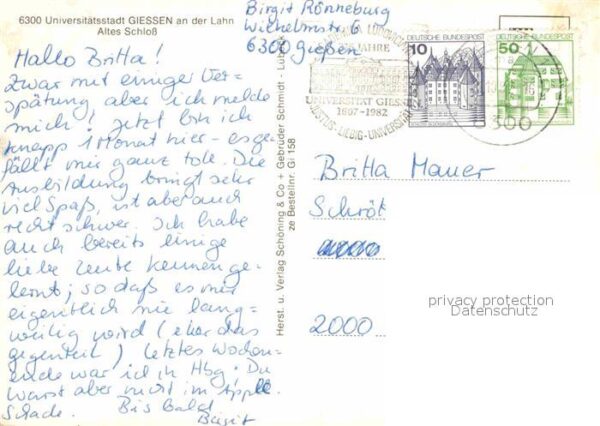 6300 Universitätsstadt GIESSEN an der Lahn
Altes Schloß
Birgit Rönneburg
Wilhelmstr. 6
6300 Gießen
Hallo Britta!
Zwar mit einiger Ver-
spätung aber ich melde
mich! Jetzt bin ich
knapp 1 Monat hier - es ge-
fällt mir ganz toll. Die
Ausbildung bringt sehr
viel Spaß, ist aber auch
recht schwer. Ich habe
auch bereits einige
liebe Leute kennenge-
lernt; so daß es mir
eigentlich nie lang-
weilig wird (eher das
gegenteil) letztes Wochen-
ende war ich in Hbg. Du
warst aber nicht im
Schade. Bis Bald
Birgit
Herst. u. Verlag Schöning & Co + Gebrüder Schmidt - Lübeck
ze Bestellnr. Gi 158
JAHRE
UNIVERSITÄT GIESSEN
1607-1982
JUSTUS-LIEBIG-UNIVERSITÄT
DEUTSCHE BUNDESPOST
10
DEUTSCHE BUNDESPOST
50
6300
Britta Mauer
Schröt
2000
privacy protection
Datenschutz